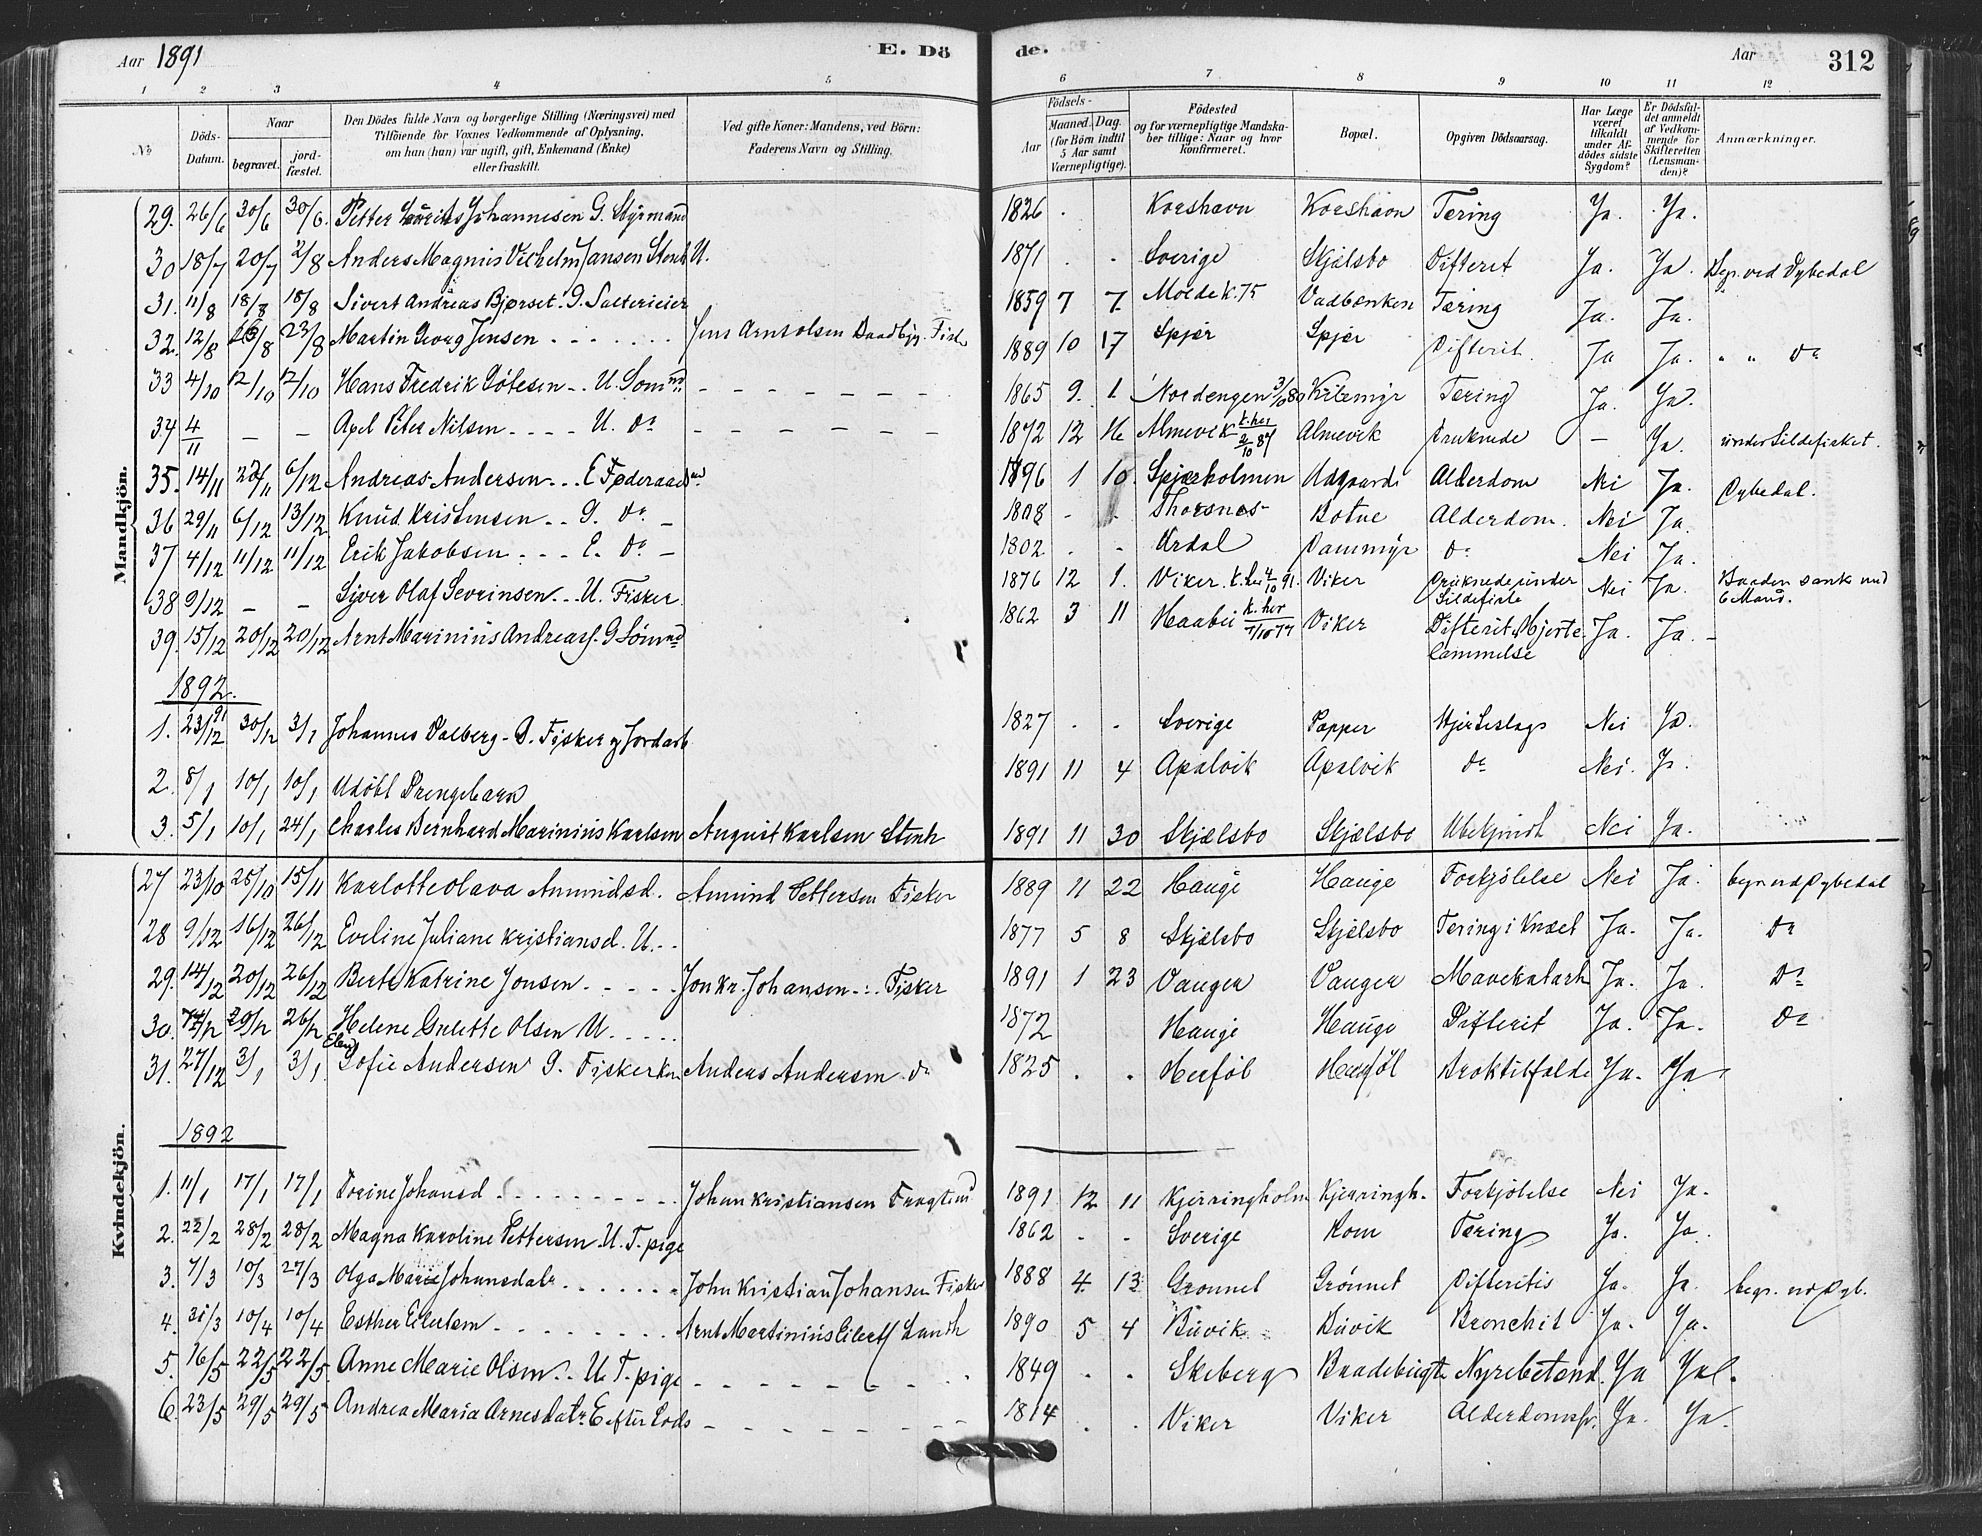 Aar 1891
E. Dö
de.
Aar
312
1 2 3 4 5 6 7 8 9 10 11 12
No
Döds-Datum.
Naar
begravet.
jord-fæstet.
Den Dödes fulde Navn og borgerlige Stilling (Næringsvei) med
Tilföiende for Voxnes Vedkommende af Oplysning,
om han (hun) var ugift, gift, Enkemand (Enke)
eller fraskilt.
Ved gifte Koner: Mandens, ved Börn:
Faderens Navn og Stilling.
Födsels-
Aar
Maaned. Dag.
(for Börn indtil
5 Aar samt
Værnepligtige).
Födested
og for værnepligtige Mandska-
ber tillige: Naar og hvor
konfirmeret.
Bopæl.
Opgiven Dödsaarsag.
Har Læge
været
tilkaldt
under Af-
dödes sidste
Sygdom?
Er Dödsfal-
det anmeldt
af Vedkom-
mende for
Skifteretten
(Lensman-
den)?
Anmærkninger.
Mandkjön.
29. 26/6 30/6 30/6 Petter Johannesen G. Styrmand 1826 . Korshavn Korshavn Tæring Ja. Ja.
30 18/7 20/7 2/8 Anders Magnus Vilhelm Jansen Stenh U. 1871 . . Sverige Skjelsbo Difterit Ja. Ja. Begr. ved Dybedal
31. 11/8 18/8 18/8 Sivert Andreas Bjørset. G. Salterieier 1859 7 7. Molde k. 75 Vadbænken Tæring Ja. Ja.
32. 12/8 23/8 23/8 Martin Georg Jensen Jens Arnt Olsen Baadbyg. Fisk 1889 10 17 Spjær Spjær Difterit. Ja Ja. " " do
33 4/10 12/10 12/10 Hans Fredrik Götesen U. Sømnd 1865 9. 1 Nordengen 3/10 80 Kilemyr Tæring Ja. Ja.
34 4/11 – – Axel Peter Nilsen U. do 1872 12 16 Almevik k. her 2/10 87 Almevik Druknede – Ja. under Sildefisket.
35. 14/11 27/11 6/12 Andreas Andersen E Føderaadmd 1896 1 10. Spjærholmen Udgaard Alderdom Nei Ja. Dybedal.
36 29/11 6/12 13/12 Knud Kristensen G. do 1808 - - Thorsnes Botne Alderdom. Nei Ja
37 4/12 11/12 11/12 Erik Jakobsen E. do 1802 . . Urdal Dammyr do Nei Ja.
38 9/12 – – Syver Olaf Severinsen U. Fisker. 1876 12 1. Viker. k. her 4/10 91. Viker Druknede under Sildefiske Nei Ja. Baaden sank med 6 Mand.
39. 15/12 20/12 20/12 Arnt Marinius Andreass. G Sömnd 1862 3 11 Haabu k. her 1/10 77 Viker Difterit, Hjerte lammelse Ja. Ja.
1892.
1. 23/12 91 30/12 3/1 Johannes Dalberg G. Fisker og Jordarb 1827 . . Sverige Papper Hjerteslag Nei Ja
2. 8/1 10/1 10/1 Udöbt Drengebarn 1891 11 4 Apalvik Apalvik do Nei. Ja.
3. 5/1 10/1 24/1 Charles Bernhard Marinius Karlsen August Karlsen Stenh 1891 11 30 Skjælsbo Skjælsbo Ubekjendt Nei Ja.
Kvindekjön.
27 23/10 25/10 15/11 Karlotte Olava Amundsd. Amund Pettersen Fisker 1889 11 22 Hauge Hauge Forkjölelse Nei Ja. begr. ved Dybedal
28 9/12 16/12 26/12 Eveline Juliane Kristiansd. U. 1877 5 8 Skjelsbo Skjelsbo Tæring i Knæet Ja. Ja. do
29. 14/12 20/12 26/12 Berte Katrine Jonsen Jon Kr. Johansen Fisker 1891 1 23 Vauger Vauger Mavekatarh Ja. Ja. do
30. 29/12 26/12 Helene Gulette Olsen U. 1872 Hauge Hauge Difterit Ja. Ja. do
31. 27/12 3/1 3/1 Sofie Andersen G. Fiskerkon Anders Andersen do 1825 . . Herföl Herföl Broktilfælde Ja. Ja
1892
1. 11/1 17/1 17/1 Dorine Johansd Johan Kristiansen Fragtmd 1891 12 11 Kjerringholm Kjerringh. Forkjölelse Nei Ja.
2. 22/2 28/2 28/2 Magna Karoline Pettersen U. T. pige 1862 . . Sverige Rom Tæring Ja. Ja.
3. 7/3 10/3 27/3 Olga Marie Johansdatr. John Kristian Johansen Fisker 1888 4. 13 Grønnet Grönnet Difteritis Ja. Ja. begr. ved Dyb.
4. 31/3 10/4 10/4 Esther Eilertsen Arnt Martinius Eilerts Landh 1890 5 4 Buvik Buvik Bronchit Ja. Ja.
5. 16/5 22/5 22/5 Anne Marie Olsen U. T. pige 1849 . . Skeberg Baadebugt Nyrebetænd. Ja Ja.
6. 23/5 29/5 29/5 Andrea Maria Arnesdatr. E efter Lods 1814 . . Viker Viker Alderdomssv. Ja. Ja.